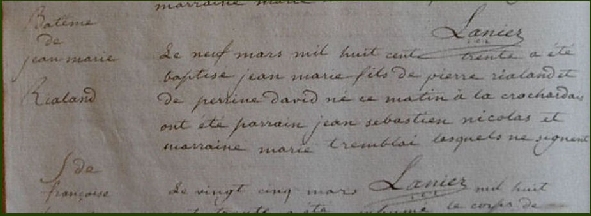 marraine marie
Lanier
Batême
de
jean marie
Réaland
Le neuf mars mil huit cent trente a été
baptisé jean marie fils de pierre réaland et
de perrine david né ce matin à la crochardais
ont été parrain jean sebastien nicolas et
marraine marie tremblai lesquels ne signent
Lanier
S de
françoise
Le vingt cinq mars mil huit
le corps de